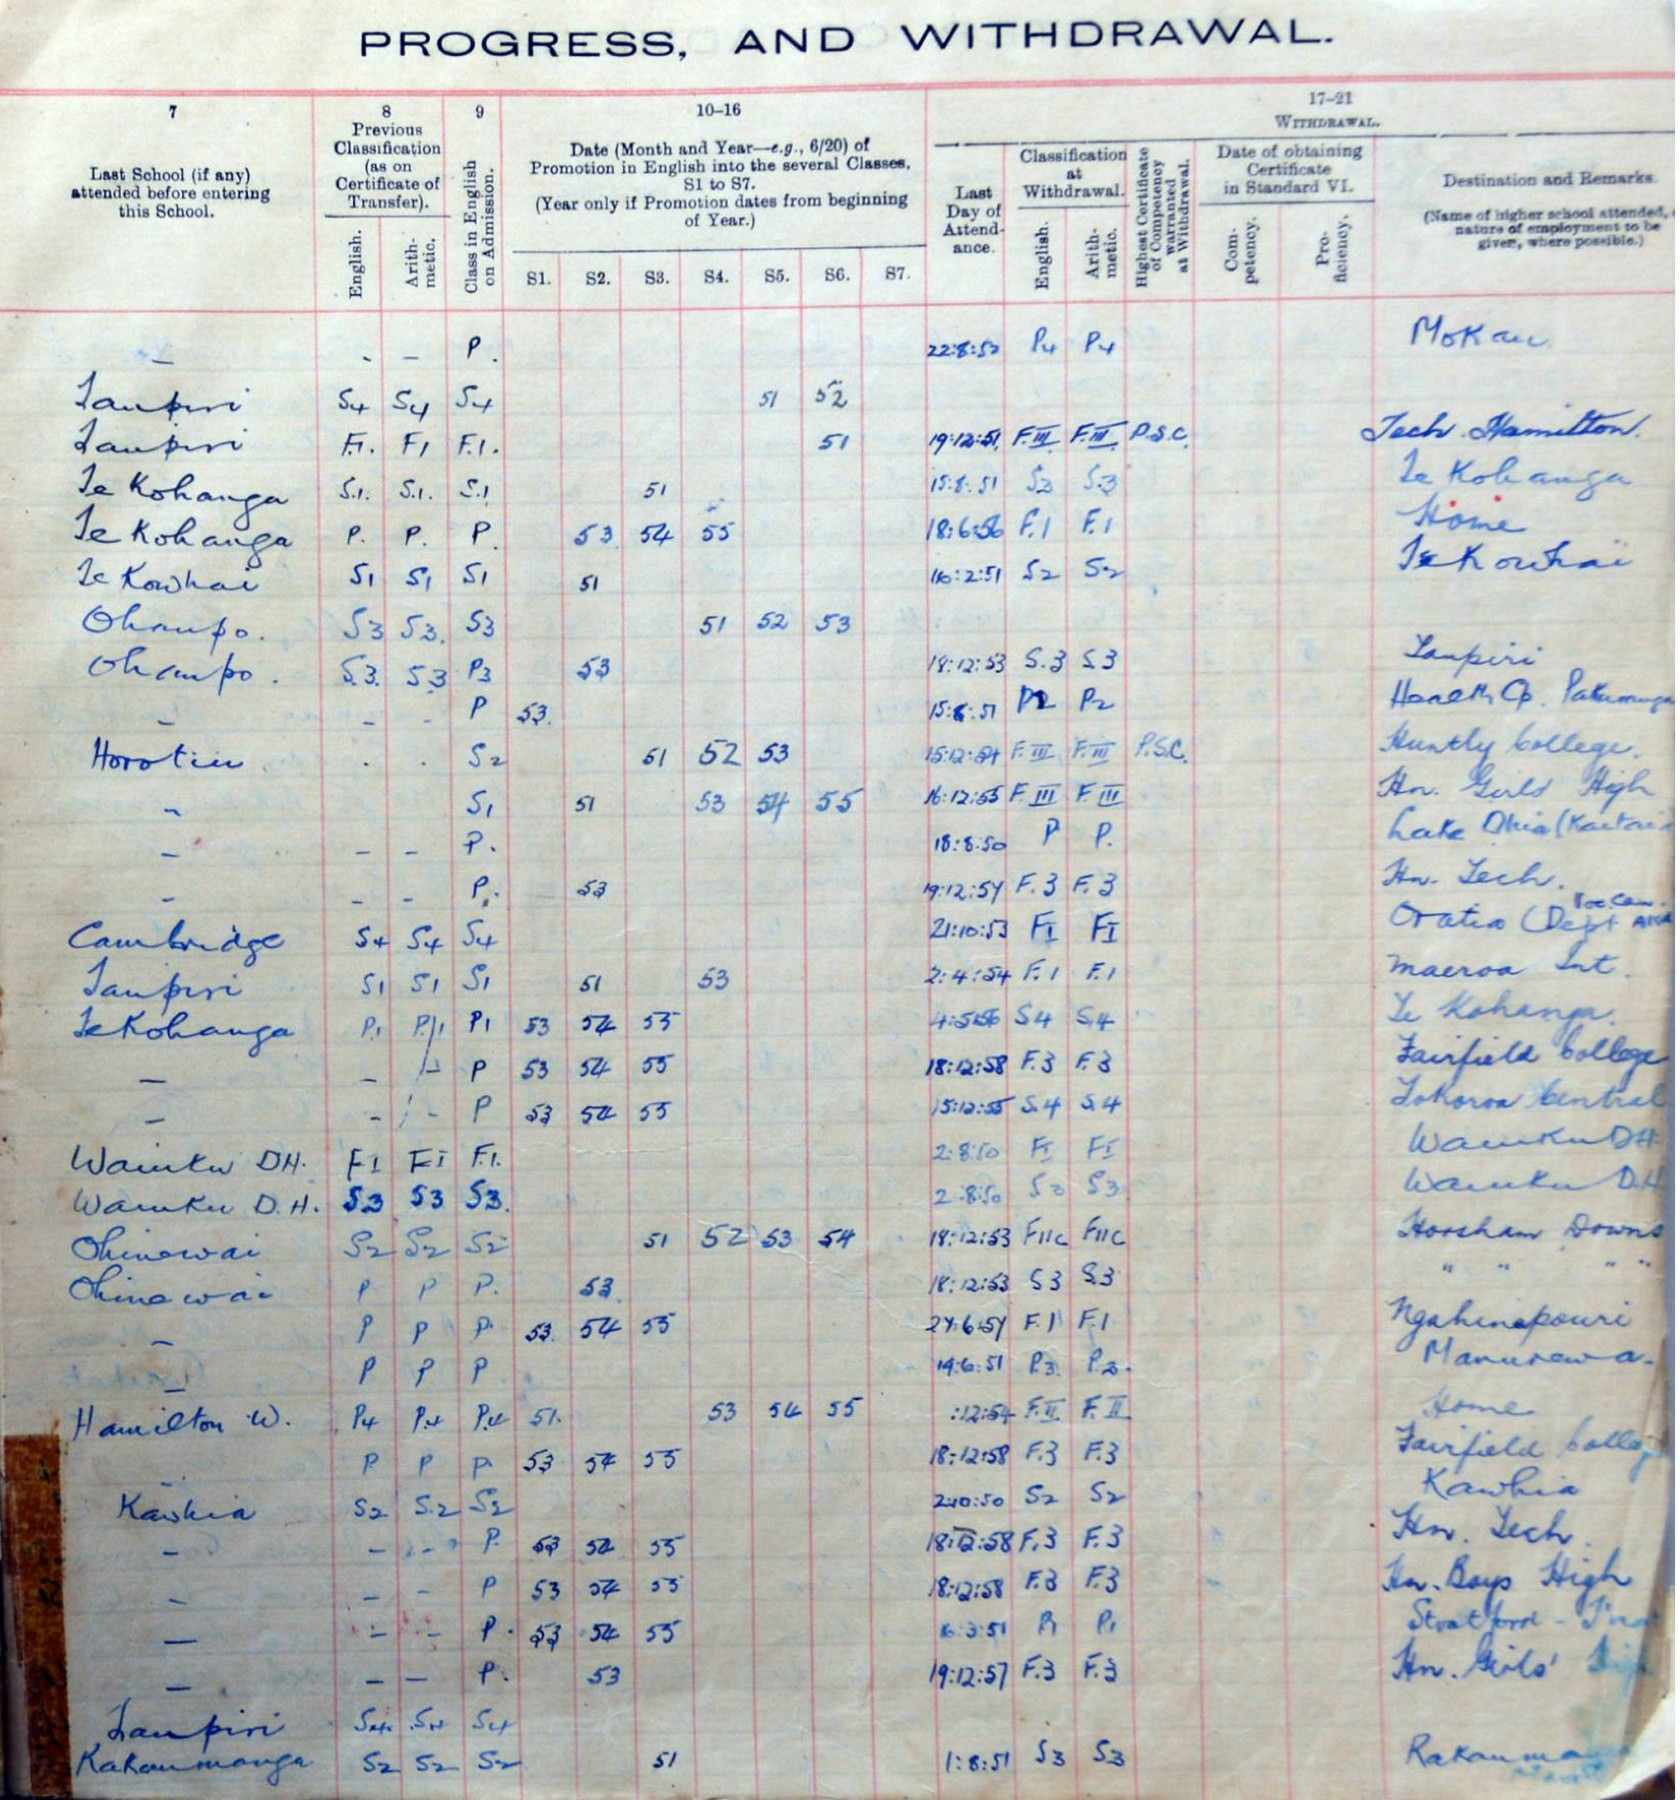 PROGRESS, AND WITHDRAWAL.
7 8 9 10–16 17–21
Last School (if any) attended before entering this School.
Previous Classification (as on Certificate of Transfer).
English. Arithmetic.
Class in English on Admission.
Date (Month and Year—e.g., 6/20) of Promotion in English into the several Classes, S1 to S7.
(Year only if Promotion dates from beginning of Year.)
S1. S2. S3. S4. S5. S6. S7.
WITHDRAWAL.
Last Day of Attendance.
Classification at Withdrawal.
English. Arithmetic.
Highest Certificate of Competency warranted at Withdrawal.
Date of obtaining Certificate in Standard VI.
Competency. Proficiency.
Destination and Remarks
(Name of higher school attended, nature of employment to be given, where possible.)
— - — P. 22:8:52 P4 P4 Mokau
Taupiri S4 S4 S4 51 52
Taupiri F.1. F1 F.1. 51 19:12:51 F.III F.III P.S.C. Tech. Hamilton.
Te Kohanga S.1. S.1. S.1 51 15:8:51 S3 S.3 Te Kohanga
Te Kohanga P. P. P. 53 54 55 18:6:56 F.1 F.1 Home
Te Kowhai S1 S1 S1 51 16:2:51 S2 S2 Te Kowhai
Ohaupo. S3 S3. S3 51 52 53
Ohaupo. S.3. S3 P3 53 18:12:53 S.3 S3 Taupiri
— - - P 53. 15:8:51 P2 P2 Health Cp.
Horotiu . . S2 51 52 53 15:12:54 F.III F.III P.S.C. Huntly College.
- S1 51 53 54 55 16:12:55 F.III F.III Hn. Girls High
— — — P. 18:8:50 P P. Lake Ohia (Kaitaia
— - - P. 53 19:12:54 F.3 F.3 Hn. Tech.
Cambridge S4 S4 S4 21:10:53 FI FI Oratia (Dept
Taupiri S1 S1 S1 51 53 2:4:54 F.1 F.1 Maeroa Int.
Te Kohanga P1 P1 P1 53 54 55 4:5:56 S4 S.4 Te Kohanga.
— - - P 53 54 55 18:12:58 F.3 F.3 Fairfield College
— - - P 53 54 55 15:12:55 S.4 S.4 Tokoroa Central
Waiuku DH. F I F I F.1. 2:8:50 FI FI Waiuku DH.
Waiuku D.H. S3 S3 S3. 2:8:50 S3 S3 Waiuku D.H.
Ohinewai S2 S2 S2 51 52 53 54 18:12:53 FIIc FIIc Horsham Downs
Ohinewai P P P. 53. 18:12:53 S3 S.3 " " " "
— P P P. 53. 54 55 F.1 F.1 Ngahinapouri
— P P P 19:6:51 P.3. P.3. Manurewa.
Hamilton W. P4 P.4 P.4 51. 53 54 55 :12:54 F.II F.II Home
- P P P. 53 54 55 18:12:58 F.3 F.3 Fairfield Colleg
Kawhia S2 S.2 S2 2:10:50 S2 S2 Kawhia
— - - P. 53 54 55 18:12:58 F.3 F.3 Hn. Tech.
- - - P 53 54 55 18:12:58 F.3 F.3 Hn. Boys High
— - - P. 53 54 55 6:3:51 P1 P1 Stratford -
— - — P. 53 19:12:57 F.3 F.3 Hn. Girls' High
Taupiri S4. S4 S4
Rakaumanga S2 S2 S2 51 1:8:51 S3 S3 Rakauma